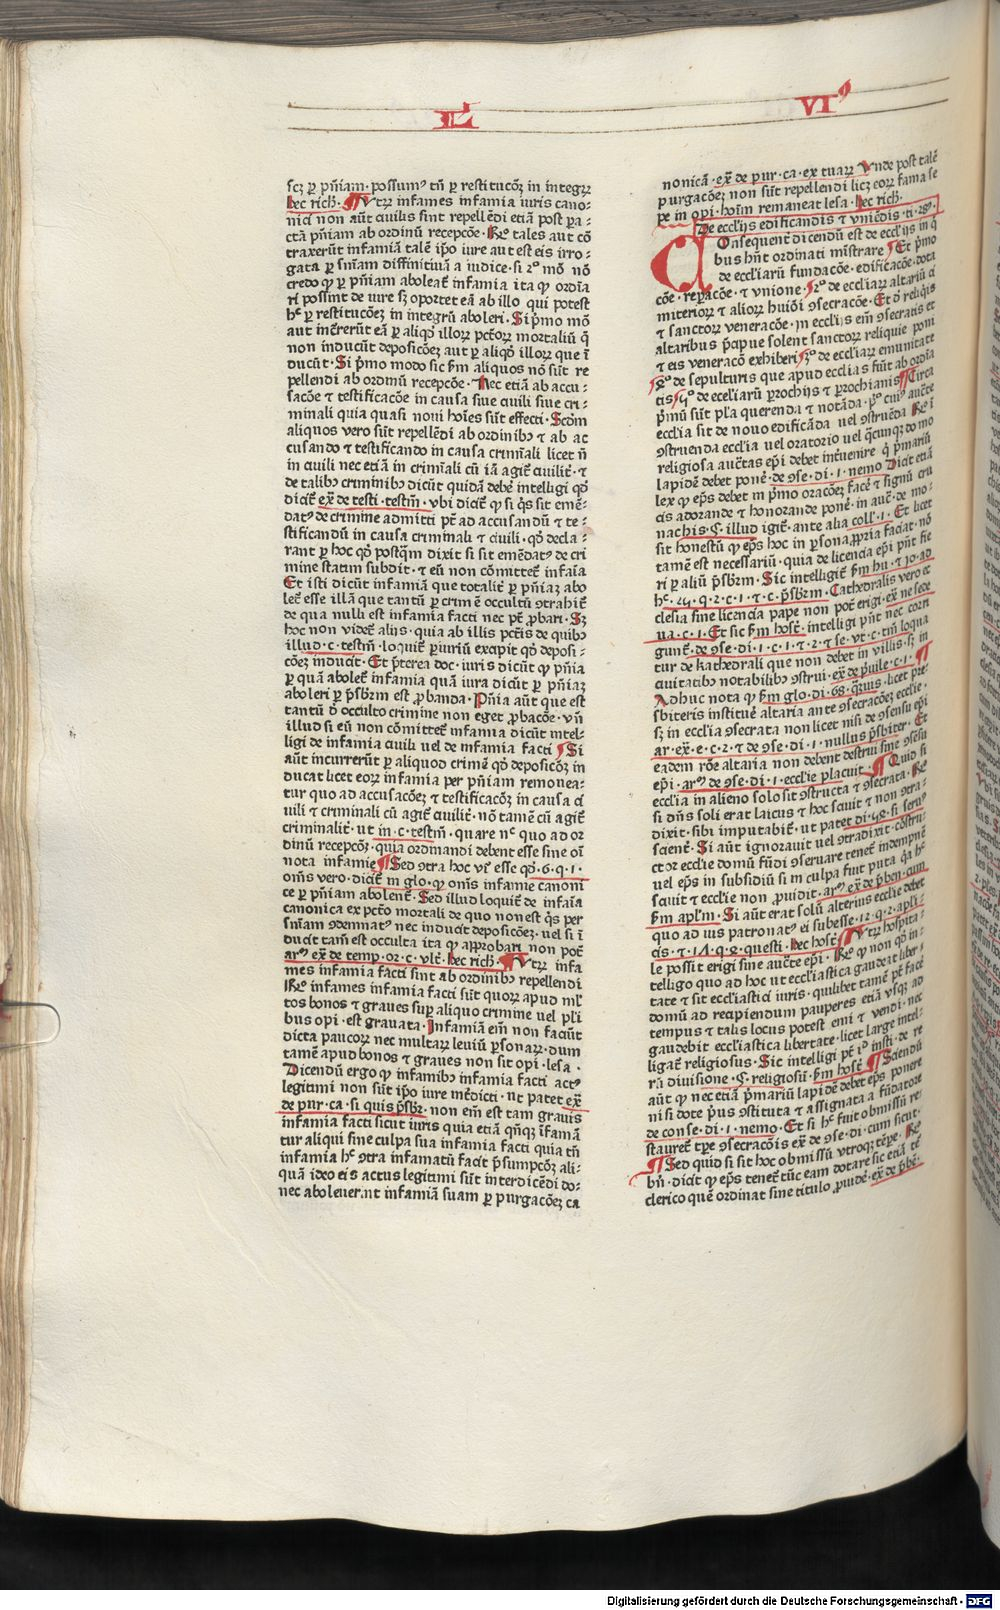 L
VI⁹
scꝫ ꝑ pñiam· possumꝰ tñ ꝑ restitucõꝫ in integꝝ
hec rich̃. ¶ Vtꝝ infames infamia iuris cano⸗
nici non aũt ciuilis sint repellẽdi etiã post ꝑa⸗
ctã pñiam ab ordinũ recepcõe· Rñ tales aut cõ
traxerũt infamiã talẽ ip̃o iure aut est eis irro⸗
gata ꝑ sñiam diffinitiuã a iudice· si 2º mõ nõ
credo ꝙ ꝑ pñiam aboleat̃ infamia ita ꝙ ordĩa
ri possint de iure sꝫ oportet eã ab illo qui potest
hᶜ ꝑ restitucõeꝫ in integrũ aboleri· Si p̃mo mõ
aut incr̃erũt eã ꝑ aliqd̃ illoꝝ pctõꝝ mortaliũ q̃
non inducũt deposicõeꝫ aut ꝑ aliqd̃ illoꝝ que ĩ
ducũt· Si p̃mo modo sic ẜm aliquos nõ sũt re
pellendi ab ordinũ recepcõe· Nec etiã ab accu⸗
sacõe ⁊ testificacõe in causa siue ciuili siue cri⸗
minali quia quasi noui hoĩes sũt effecti· Scd̃m
aliquos vero sũt repellẽdi ab ordinibꝰ ⁊ ab ac
cusando ⁊ testificando in causa crimĩali licet ñ
in ciuili nec etiã in crimĩali cũ iã agit̃ ciuilit̃· ⁊
de talibꝰ criminibꝰ dicũt quidã debẽ intelligi qd̃
dicit̃ ex̃ de testi· testm̃· vbi dicit̃ ꝙ si q̃s sit emẽ⸗
datꝰ de crimine admitti pt̃ ad accusandũ ⁊ te⸗
stificandũ in causa criminali ⁊ ciuili· qd̃ decla⸗
rant ꝑ hoc qd̃ postq̃m dixit si sit emẽdatꝰ de cri
mine statim subdit· ⁊ eũ non cõmittet̃ infaĩa
Et isti dicũt infamiã que totalit̃ ꝑ pñiaꝫ abo
let̃ esse illã que tantũ ꝑ crimẽ occultũ ꝯtrahit̃
de qua nulli est infamia facti nec pt̃ ꝓbari· Sꝫ
hoc non videt̃ alijs· quia ab illis pctĩs de quibꝰ
illud· c· testm̃· loquit̃ ꝑiuriũ excipit qd̃ deposi⸗
cõeꝫ inducit· Et p̃terea doc· iuris dicũt ꝙ pñia
ꝑ quã abolet̃ infamia quã iura dicũt ꝑ pñiaꝫ
aboleri ꝑ p̃sbrm est ꝓbanda· Pñia aũt que est
tantũ ð occulto crimine non eget ꝓbacõe· vñ
illud si eũ non cõmittet̃ infamia dicũt intel⸗
ligi de infamia ciuili uel de infamia facti ¶ Si
aũt incurrerũt ꝑ aliquod crimẽ qd̃ deposicõꝫ in
ducat licet eoꝝ infamia per pñiam remonea⸗
tur quo ad accusacõeꝫ ⁊ testificacõꝫ in causa ci
uili ⁊ criminali cũ agit̃ ciuilit̃· nõ tamẽ cũ agit̃
criminalit̃· ut in· c· testm̃· quare nᶜ quo ad or
dinũ recepcõꝫ· quia ordinandi debent esse sine oĩ
nota infamie ¶ Sed ꝯtra hoc vr̃ esse qd̃· 6· q· 1·
om̃s vero· dicit̃ in glo· ꝙ om̃s infamie canoni
ce ꝑ pñiam abolent̃· Sed illud loquit̃ de infaĩa
canonica ex pctõ mortali de quo non est q̃s per
sñiam ꝯdemnatꝰ nec inducit deposicõeꝫ· uel si ĩ
ducit tam̃ est occulta ita ꝙ aꝓbari non pot̃
arᵒ ex̃ de temp· or· c· vlt̃· hec rich̃· ¶ Vtꝝ infa
mes infamia facti sint ab ordinibꝰ repellendi
Rñ infames infamia facti sũt quoꝝ apud ml̃
tos bonos ⁊ graues suꝑ aliquo crimine uel pl̃i
bus opi· est grauata· Infamiã em̃ non faciũt
dicta paucoꝝ nec multaꝝ leuiũ ꝑsonaꝝ· dum
tamẽ apud bonos ⁊ graues non sit opi· lesa·
Dicendũ ergo ꝙ infamibꝰ infamia facti actꝰ
legitimi non sũt ip̃o iure ĩt̃dicti· ut patet ex̃
de pur· ca· si quis p̃sbr̃· non em̃ est tam grauis
infamia facti sicut iuris quia etiã qñqꝫ ĩfamã
tur aliqui sine culpa sua infamia facti quia tñ
infamia hᶜ ꝯtra infamatũ facit p̃sumpcõꝫ ali⸗
quã ideo eis actus legitimi sũt interdicẽdi do⸗
nec aboleuerint infamiã suam ꝑ purgacõeꝫ ca
nonicã· ex̃ de pur· ca· ex tuaꝝ Vnde post talẽ
purgacõeꝫ non sũt repellendi licꝫ eoꝝ fama se
pe in opi· hoĩm remaneat lesa· hec rich̃·
De eccl̃ijs edificandis ⁊ vniẽdis· ti· 28ᵘˢ·
COnsequent̃ dicendũ est de eccl̃ijs in q̃
bus hñt ordinati mĩstrare ¶ Et p̃mo
de eccl̃iarũ fundacõe· edificacõe· dota
cõe· reꝑacõe· ⁊ vnione· 2º de eccl̃iaꝝ altariũ ci
miterioꝝ ⁊ alioꝝ huiõi ꝯsecracõe· Et ð reliq̃is
⁊ sanctoꝝ veneracõe· in eccl̃ijs em̃ ꝯsecratis et
altaribus p̃cipue solent sanctoꝝ reliquie poni
⁊ eis veneracõ exhiberi· 3º de eccl̃iaꝝ emunitate
4º de sepulturis que apud ecclias fiũt ab ordĩa
tis 5º de eccl̃iarũ ꝑochijs ⁊ ꝑochianis ¶ Circa
p̃mũ sũt pl̃a querenda ⁊ notãda· pº cuiꝰ auctẽ
eccl̃ia sit de nouo edificãda uel ꝯstruẽda Rñ ĩ
ꝯstruenda eccl̃ia uel oratorio uel q̃cunqꝫ domo
religiosa auctas ep̃i debet int̃uenire q̃ p̃mariũ
lapidẽ debet ponẽ· de ꝯse· di· 1· nemo Dicit etiã
lex ꝙ ep̃s debet in p̃mo oracõeꝫ facẽ ⁊ signũ cru
cis adorande ⁊ honorande ponẽ· in auct̃· de mo⸗
nachis· C· illud igit̃· ante alia coll· 1· Et licet
sit honestũ ꝙ ep̃s hoc in ꝑsona ꝓpria faciat· nõ
tamẽ est necessariũ· quia de licencia ep̃i pñt fie
ri ꝑ aliũ p̃sbrm· Sic intelligit̃ ẜm hu· ⁊ jo· ad
hᶜ· 24· q· 2· c· 1· ⁊ c· p̃sbrm· Cathedralis vero ec
clesia sine licencia pape non pot̃ erigi· ex̃ ne sede
ua· c· 1· Et sic ẜm host̃· intelligi pñt nec corri
gunt̃· de ꝯse· di· 1· c· 1· ⁊ 2· ⁊ se· vt· c· tm̃· loqua
tur de kathedrali que non debet in villis· sꝫ in
ciuitatibꝰ notabilibꝰ ꝯstrui· ex̃ de p̃uile· c· 1· ¶
Adhuc nota ꝙ ẜm glo· di· 68· q̃uis· licet pre⸗
sbiteris instituẽ altaria ante ꝯsecracõeꝫ ecclie·
sꝫ in eccl̃ia ꝯsecrata non licet nisi de ꝯsensu ep̃i
ar· ex̃· e· c· 2· ⁊ de ꝯse· di· 1· nullus p̃sbiter· Et
eadem rõe altaria non debent destrui sine ꝯsẽsu
ep̃i· arᵒ· de ꝯse· di· 1· ecclie placuit· ¶ Quid si
eccl̃ia in alieno solo sit ꝯstructa ⁊ ꝯsecrata· Rñ
si dñs soli erat laicus ⁊ hoc sciuit ⁊ non ꝯtra⸗
dixit· sibi imputabit̃· ut patet di· 54· si seruꝰ
scient̃· Si aũt ignorauit uel ꝯtradixit· cõstru⸗
ctor ecclie domũ fũdi ꝯseruare tenet̃ indempnẽ
uel ep̃s in subsidiũ si in culpa fuit puta q̃a hᶜ
sciuit ⁊ ecclie non ꝓuidit· arᵒ· ex̃ de p̃ben· cum
ẜm apl̃m· Si aũt erat solũ alterius ecclie debet
quo ad ius patronatꝰ ei subesse· 12· q· 2· apl̃i⸗
cis· ⁊· 14· q· 8· questi· hec host̃· ¶ Vtꝝ hospita⸗
le possit erigi sine auctẽ ep̃i· Rñ ꝙ non qd̃ in⸗
telligo quo ad hoc ut eccl̃iastica gaudeat liber⸗
tate ⁊ sit eccl̃iastici iuris· quilibet tamẽ pt̃ facẽ
domũ ad recipiendum pauperes etiã vsqꝫ ad
tempus ⁊ talis locus potest emi ⁊ vendi· nec
gaudebit eccl̃iastica libertate· licet large intel⸗
ligat̃ religiosus· Sic intelligi pt̃ iᵈ insti· de re
rũ diuisione· C· religiosũ· ẜm host̃· ¶ Sciendũ
aũt ꝙ nec etiã p̃mariũ lapidẽ debet ep̃s ponere
nisi dote p̃us ꝯstituta ⁊ assignata a fũdatore
de conse· di· 1· nemo· Et si hᶜ fuit obmissũ re⸗
stauret̃ tp̃re ꝯsecracõis ex̃ de ꝯse· di· cum sicut·
¶ Sed quid si sit hoc obmissũ vtroqꝫ tẽpe· Rñ
bñ· dicit ꝙ ep̃s tenet̃ tũc eam dotare sic etiã tẽ
clerico quẽ ordinat sine titulo ꝓuidẽ· ex̃ de p̃bẽ·
Digitalisierung gefördert durch die Deutsche Forschungsgemeinschaft · DFG